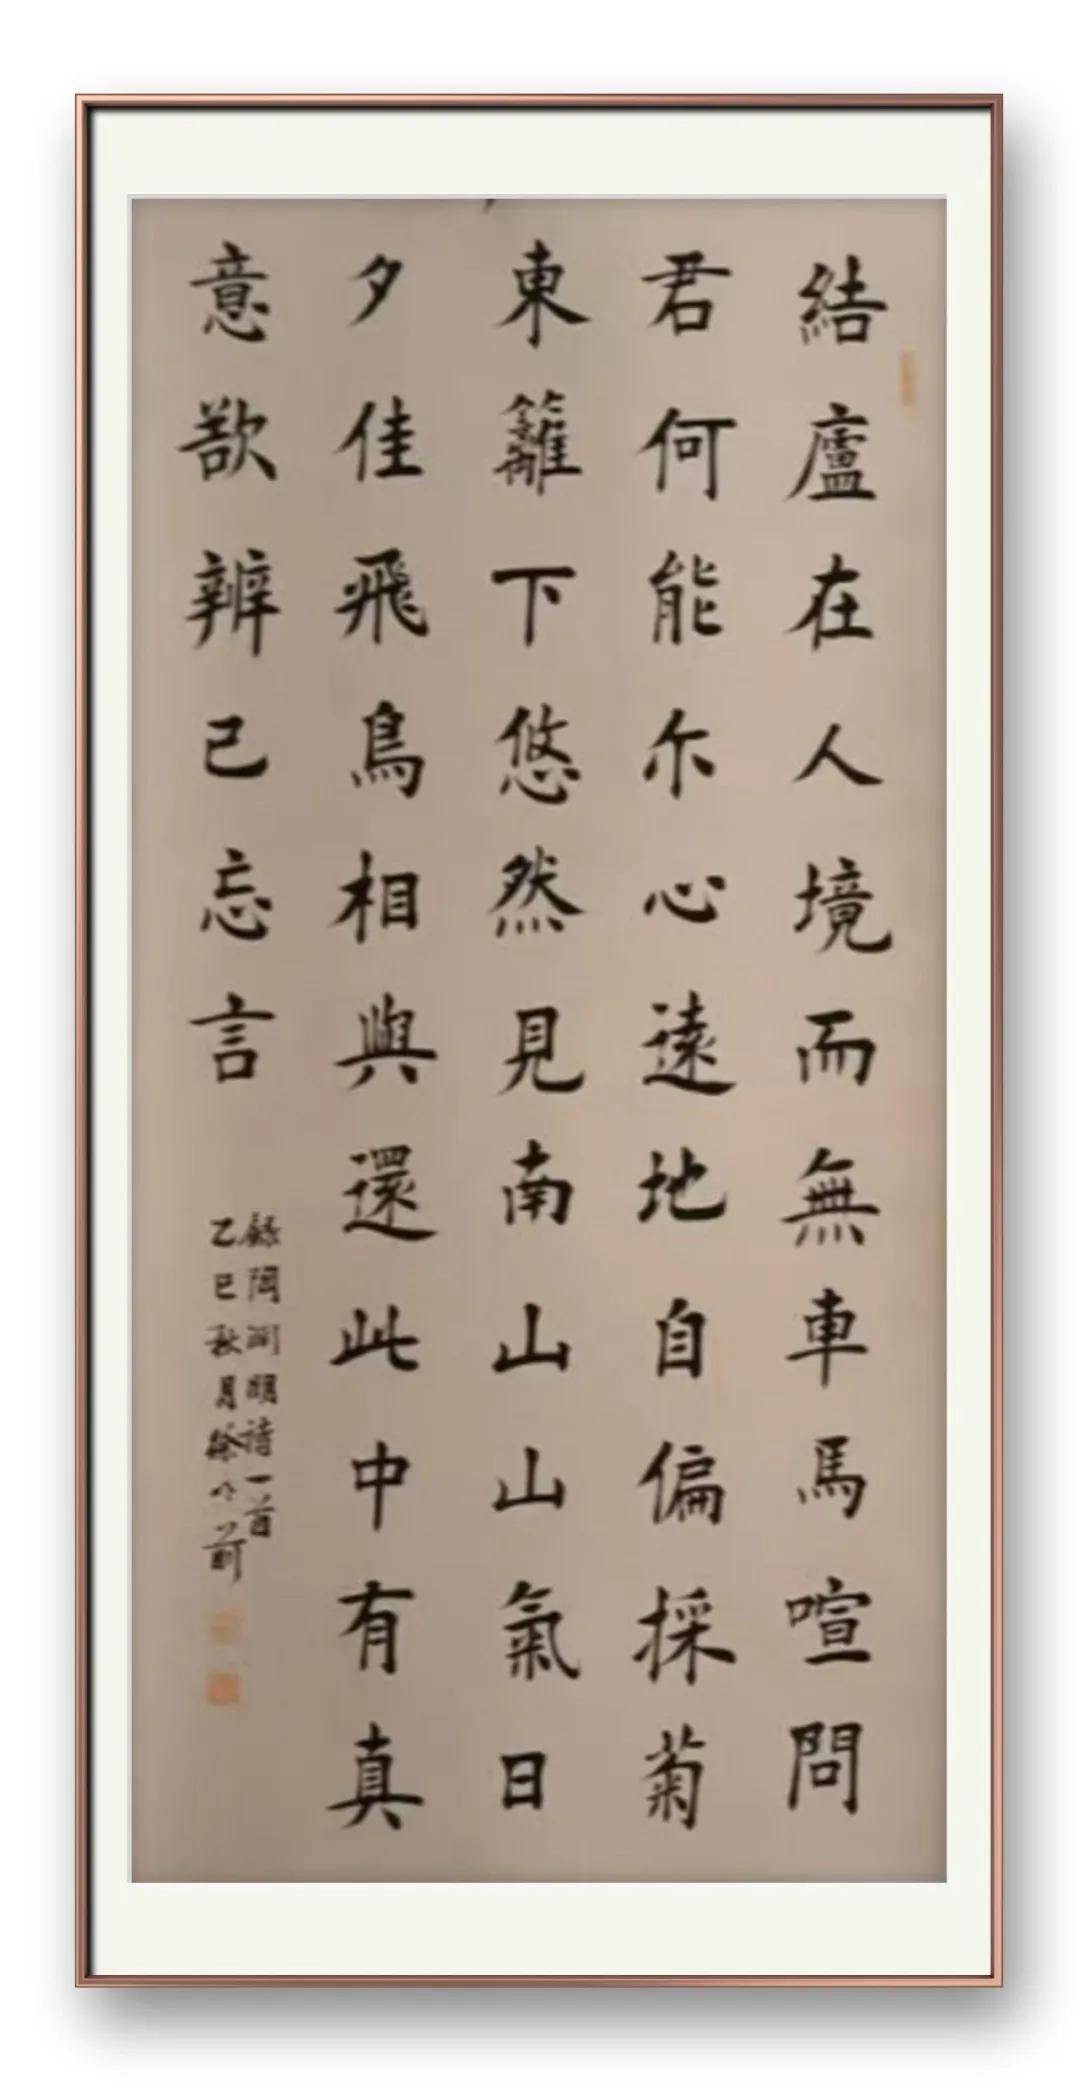 結廬在人境而無車馬喧問
君何能尔心遠地自偏採菊
東籬下悠然見南山山氣日
夕佳飛鳥相與還此中有真
意欲辨已忘言
録陶渊明诗一首
乙巳秋月徐